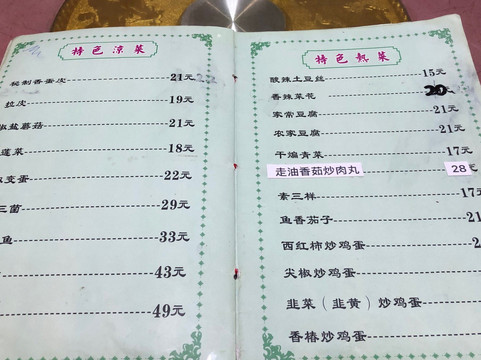 特色凉菜
秘制香蛋皮 21元
拉皮 19元
椒盐蘑菇 21元
蓬菜 18元
变蛋 22元
三菌 29元
鱼 33元
43元
49元
特色热菜
酸辣土豆丝 15元
香辣菜花 20
家常豆腐 21元
农家豆腐 21元
干煸青菜 17元
走油香茹炒肉丸 28元
素三样 17元
鱼香茄子 21
西红柿炒鸡蛋 2
尖椒炒鸡蛋
韭菜（韭黄）炒鸡蛋
香椿炒鸡蛋